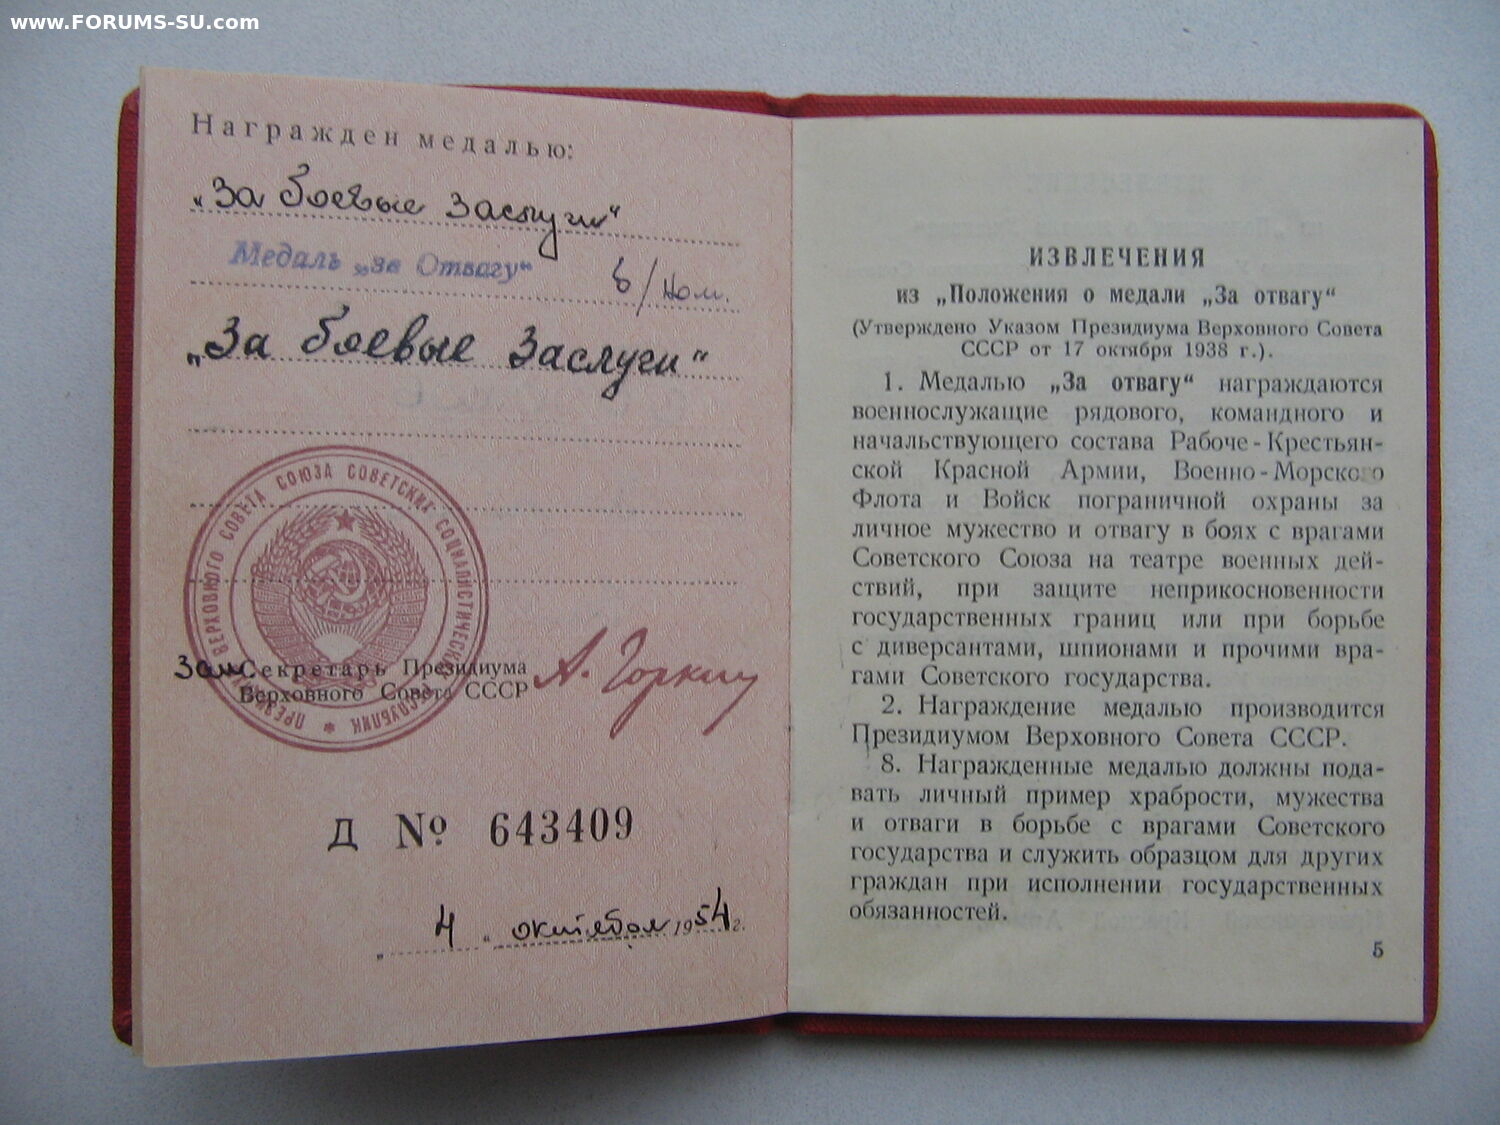 www.FORUMS-SU.com
Награжден медалью:
„За боевые заслуги“
Медаль „за Отвагу“ б/ном.
„За боевые заслуги“
ПРЕЗИДИУМ ВЕРХОВНОГО СОВЕТА СОЮЗА СОВЕТСКИХ СОЦИАЛИСТИЧЕСКИХ РЕСПУБЛИК
Зам. Секретарь Президиума
Верховного Совета СССР
А. Горкин
Д № 643409
„ 4 “ октября 1954 г.
ИЗВЛЕЧЕНИЯ
из „Положения о медали „За отвагу“
(Утверждено Указом Президиума Верховного Совета
СССР от 17 октября 1938 г.).
1. Медалью „За отвагу“ награждаются
военнослужащие рядового, командного и
начальствующего состава Рабоче-Крестьян-
ской Красной Армии, Военно-Морского
Флота и Войск пограничной охраны за
личное мужество и отвагу в боях с врагами
Советского Союза на театре военных дей-
ствий, при защите неприкосновенности
государственных границ или при борьбе
с диверсантами, шпионами и прочими вра-
гами Советского государства.
2. Награждение медалью производится
Президиумом Верховного Совета СССР.
8. Награжденные медалью должны пода-
вать личный пример храбрости, мужества
и отваги в борьбе с врагами Советского
государства и служить образцом для других
граждан при исполнении государственных
обязанностей.
5